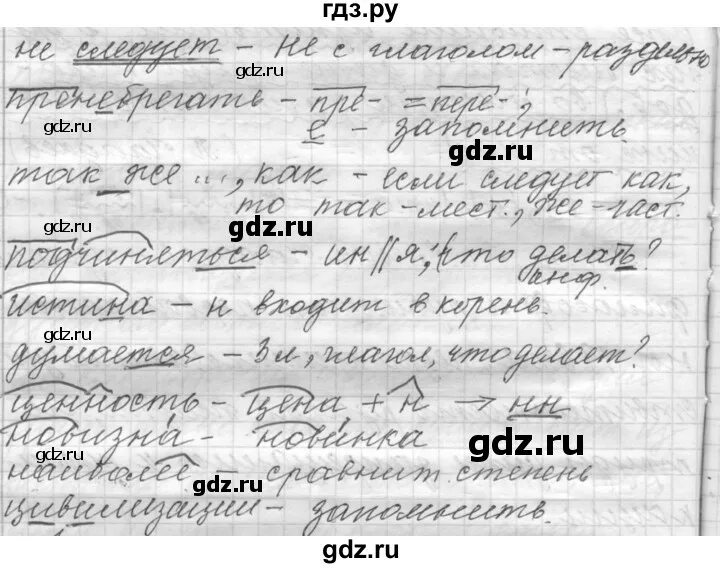 гдз.ру
не следует – Не с глаголом – раздельно
gdz.ru gdz.ru
пренебрегать – пре- = пере-;
gdz.ru
е – запомнить.
gdz.ru
так же ..., как – если следует как,
то так – мест., же – част.
gdz.ru gdz.ru
подчиняться – ин || я; что делать?
инф.
gdz.ru
истина – н входит в корень.
gdz.ru gdz.ru
думается – 3 л., глагол, что делает?
gdz.ru
ценность – цена + н → нн
новизна – новинка
gdz.ru gdz.ru
наиболее – сравнит. степень
gdz.ru
цивилизации – запомнить.
gdz.ru gdz.ru
gdz.ru